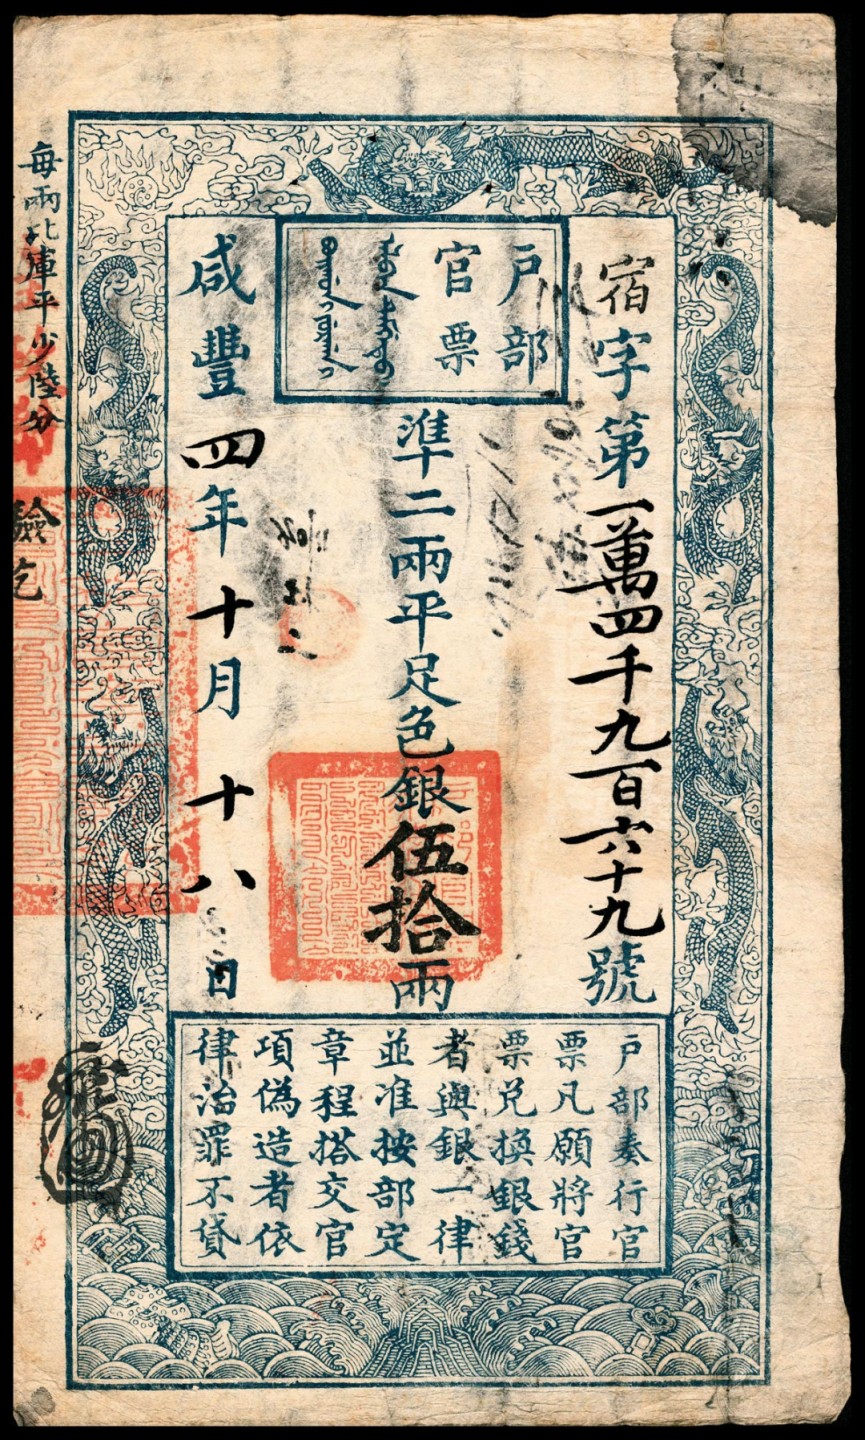 戶部
官票
宿字第一萬四千九百六十九號
準二兩平足色銀伍拾兩
咸豐四年十月十八日
戶部奏行官
票凡願將官
票兌換銀錢
者與銀一律
並准按部定
章程搭交官
項偽造者依
律治罪不貸
每兩比庫平少陸分
驗訖